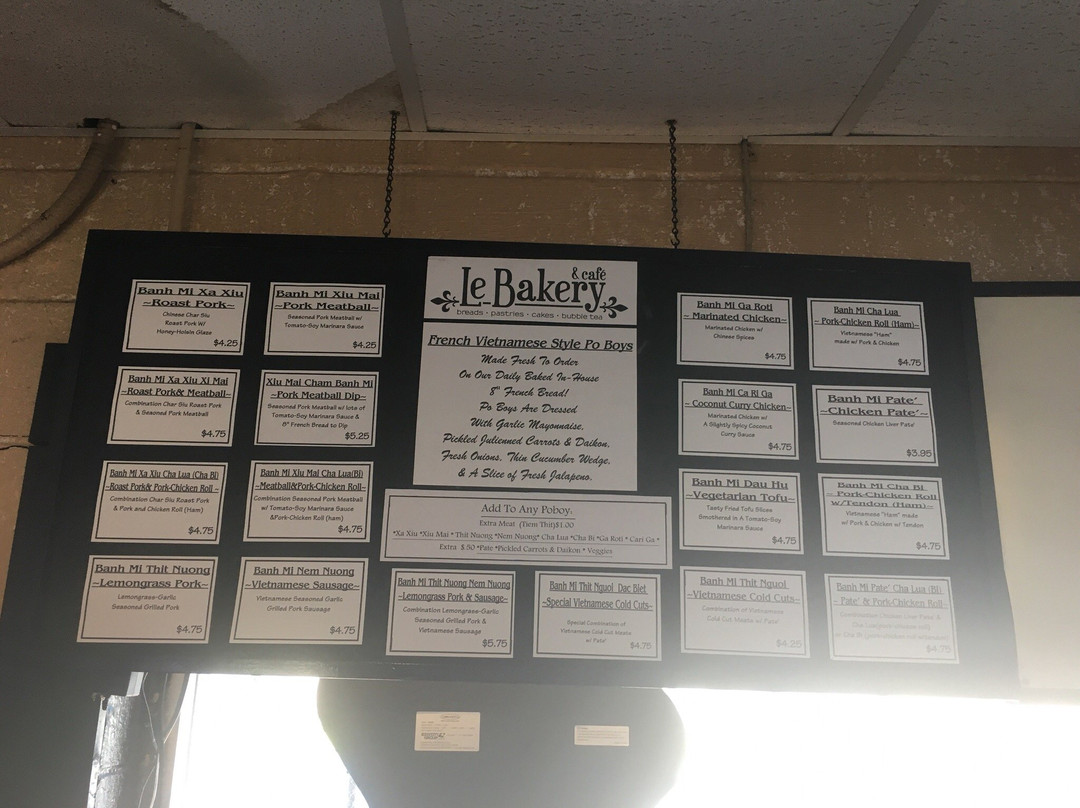 Banh Mi Xa Xiu
~Roast Pork~
Chinese Char Siu
Roast Pork W/
Honey-Hoisin Glaze
$4.25
Banh Mi Xiu Mai
~Pork Meatball~
Seasoned Pork Meatball w/
Tomato-Soy Marinara Sauce
$4.25
Banh Mi Xa Xiu Xi Mai
~Roast Pork& Meatball~
Combination Char Siu Roast Pork
& Seasoned Pork Meatball
$4.75
Xiu Mai Cham Banh Mi
~Pork Meatball Dip~
Seasoned Pork Meatball w/ lots of
Tomato-Soy Marinara Sauce &
8" French Bread to Dip
$5.25
Banh Mi Xa Xiu Cha Lua (Cha Bi)
~Roast Pork& Pork-Chicken Roll ~
Combination Char Siu Roast Pork
& Pork and Chicken Roll (Ham)
$4.75
Banh Mi Xiu Mai Cha Lua(Bi)
~Meatball&Pork-Chicken Roll~
Combination Seasoned Pork Meatball
w/ Tomato-Soy Marinara Sauce
&Pork-Chicken Roll (ham)
$4.75
Banh Mi Thit Nuong
~Lemongrass Pork~
Lemongrass-Garlic
Seasoned Grilled Pork
$4.75
Banh Mi Nem Nuong
~Vietnamese Sausage~
Vietnamese Seasoned Garlic
Grilled Pork Sausage
$4.75
Le Bakery
& café
breads · pastries · cakes · bubble tea
French Vietnamese Style Po Boys
Made Fresh To Order
On Our Daily Baked In-House
8" French Bread!
Po Boys Are Dressed
With Garlic Mayonnaise,
Pickled Julienned Carrots & Daikon,
Fresh Onions, Thin Cucumber Wedge,
& A Slice of Fresh Jalapeno.
Add To Any Poboy.
Extra Meat (Dem Thit)$1.00
*Xa Xiu *Xiu Mai * Thit Nuong *Nem Nuong* Cha Lua *Cha Bi *Ga Roti * Cari Ga *
Extra $.50 *Pate *Pickled Carrots & Daikon * Veggies
Banh Mi Thit Nuong Nem Nuong
~Lemongrass Pork & Sausage~
Combination Lemongrass-Garlic
Seasoned Grilled Pork &
Vietnamese Sausage
$5.75
Banh Mi Thit Nguoi Dac Biet
~Special Vietnamese Cold Cuts~
Special Combination of
Vietnamese Cold Cut Meats
w/ Pate'
$4.75
Banh Mi Ga Roti
~ Marinated Chicken~
Marinated Chicken w/
Chinese Spices
$4.75
Banh Mi Cha Lua
~ Pork-Chicken Roll (Ham)~
Vietnamese "Ham"
made w/ Pork & Chicken
$4.75
Banh Mi Ca Ri Ga
~ Coconut Curry Chicken~
Marinated Chicken w/
A Slightly Spicy Coconut
Curry Sauce
$4.75
Banh Mi Pate'
~Chicken Pate'~
Seasoned Chicken Liver Pate'
$3.95
Banh Mi Dau Hu
~Vegetarian Tofu~
Tasty Fried Tofu Slices
Smothered in A Tomato-Soy
Marinara Sauce
$4.75
Banh Mi Cha Bi
~ Pork-Chicken Roll
w/Tendon (Ham)~
Vietnamese "Ham" made
w/ Pork & Chicken w/ Tendon
$4.75
Banh Mi Thit Nguoi
~Vietnamese Cold Cuts~
Combination of Vietnamese
Cold Cut Meats w/ Pate'
$4.25
Banh Mi Pate' Cha Lua (Bi)
~ Pate' & Pork-Chicken Roll~
Combination Chicken Liver Pate' &
$4.75